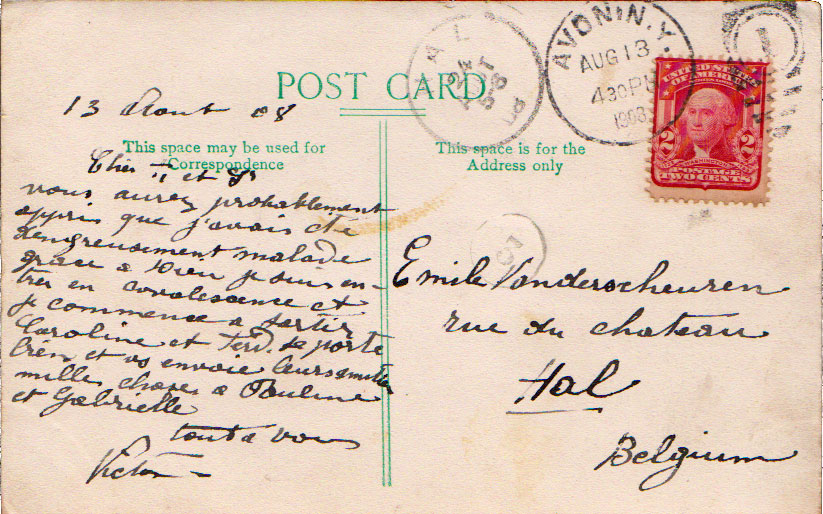 POST CARD.
HAL
AVON N.Y.
AUG 13
4 30 PM
1908
UNITED STATES
OF AMERICA
2 WASHINGTON 2
POSTAGE
TWO CENTS
This space may be used for
Correspondence
This space is for the
Address only
13 Aout 08
Cher et
vous aurez probablement
appris que j'avais été
dangereusement malade
grace a Dieu je suis en-
trer en covalescence et
je commence a sortir
Caroline et Ferd. se porte
bien et vs envoie leurs amitiés
milles choses a Pauline
et Gabrielle
tout a vous
Victor
Emile Vanderscheuren
rue du chateau
Hal
Belgium